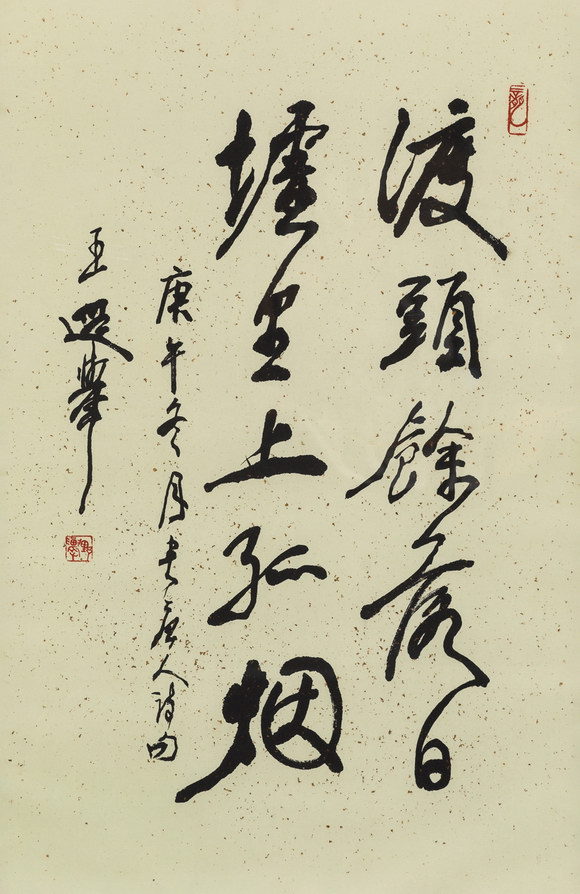 渡頭餘落日
墟里上孤烟
庚午冬月書唐人詩句
王遐舉